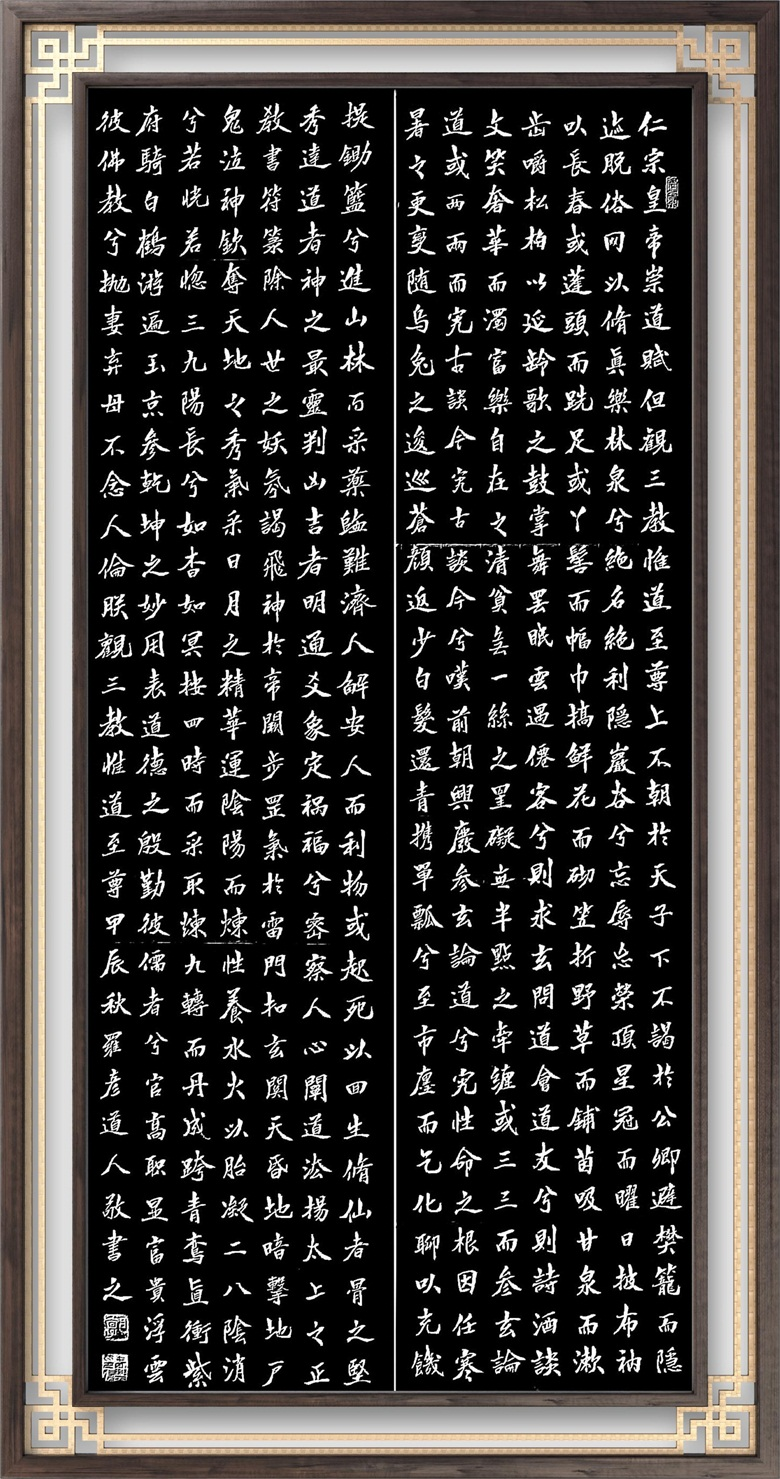 仁宗皇帝崇道賦但觀三教惟道至尊上不朝於天子下不謁於公卿避樊籠而隱
迹脱俗网以脩真樂林泉兮絶名絶利隱巖谷兮忘辱忘榮頂星冠而曜日披布衲
以長春或蓬頭而跣足或丫髻而幅巾摘鲜花而砌笠折野草而鋪茵吸甘泉而漱
齿嚼松柏以延龄歌之鼓掌舞罢眠雲遇僊客兮則求玄問道會道友兮則詩酒談
文笑奢華而濁富樂自在之清貧無一絲之罣礙無半點之牵纏或三三而参玄論
道或两两而究古談今究古談今兮嘆前朝興廢参玄論道兮究性命之根因任寒
暑々更變随乌兔之逡巡蒼顔返少白髮還青携單瓢兮至市廛而乞化聊以充饑
提鋤籃兮進山林而采藥臨難濟人解安人而利物或起死以回生脩仙者骨之堅
秀達道者神之最靈判凶吉者明通爻象定禍福兮密察人心闡道法揚太上之正
教書符箓除人世之妖氛謁飛神於帝闕步罡氣於雷門扣玄関天昏地暗擊地户
鬼泣神欽奪天地之秀氣采日月之精華運陰陽而煉性養水火以胎凝二八陰消
兮若恍若惚三九陽長兮如杳如冥按四時而采取煉九轉而丹成跨青鸞直衝紫
府騎白鶴游遍玉京参乾坤之妙用表道德之殷勤彼儒者兮官高職显富貴浮雲
彼佛教兮抛妻弃母不念人倫朕觀三教惟道至尊甲辰秋羅彦道人敬書之